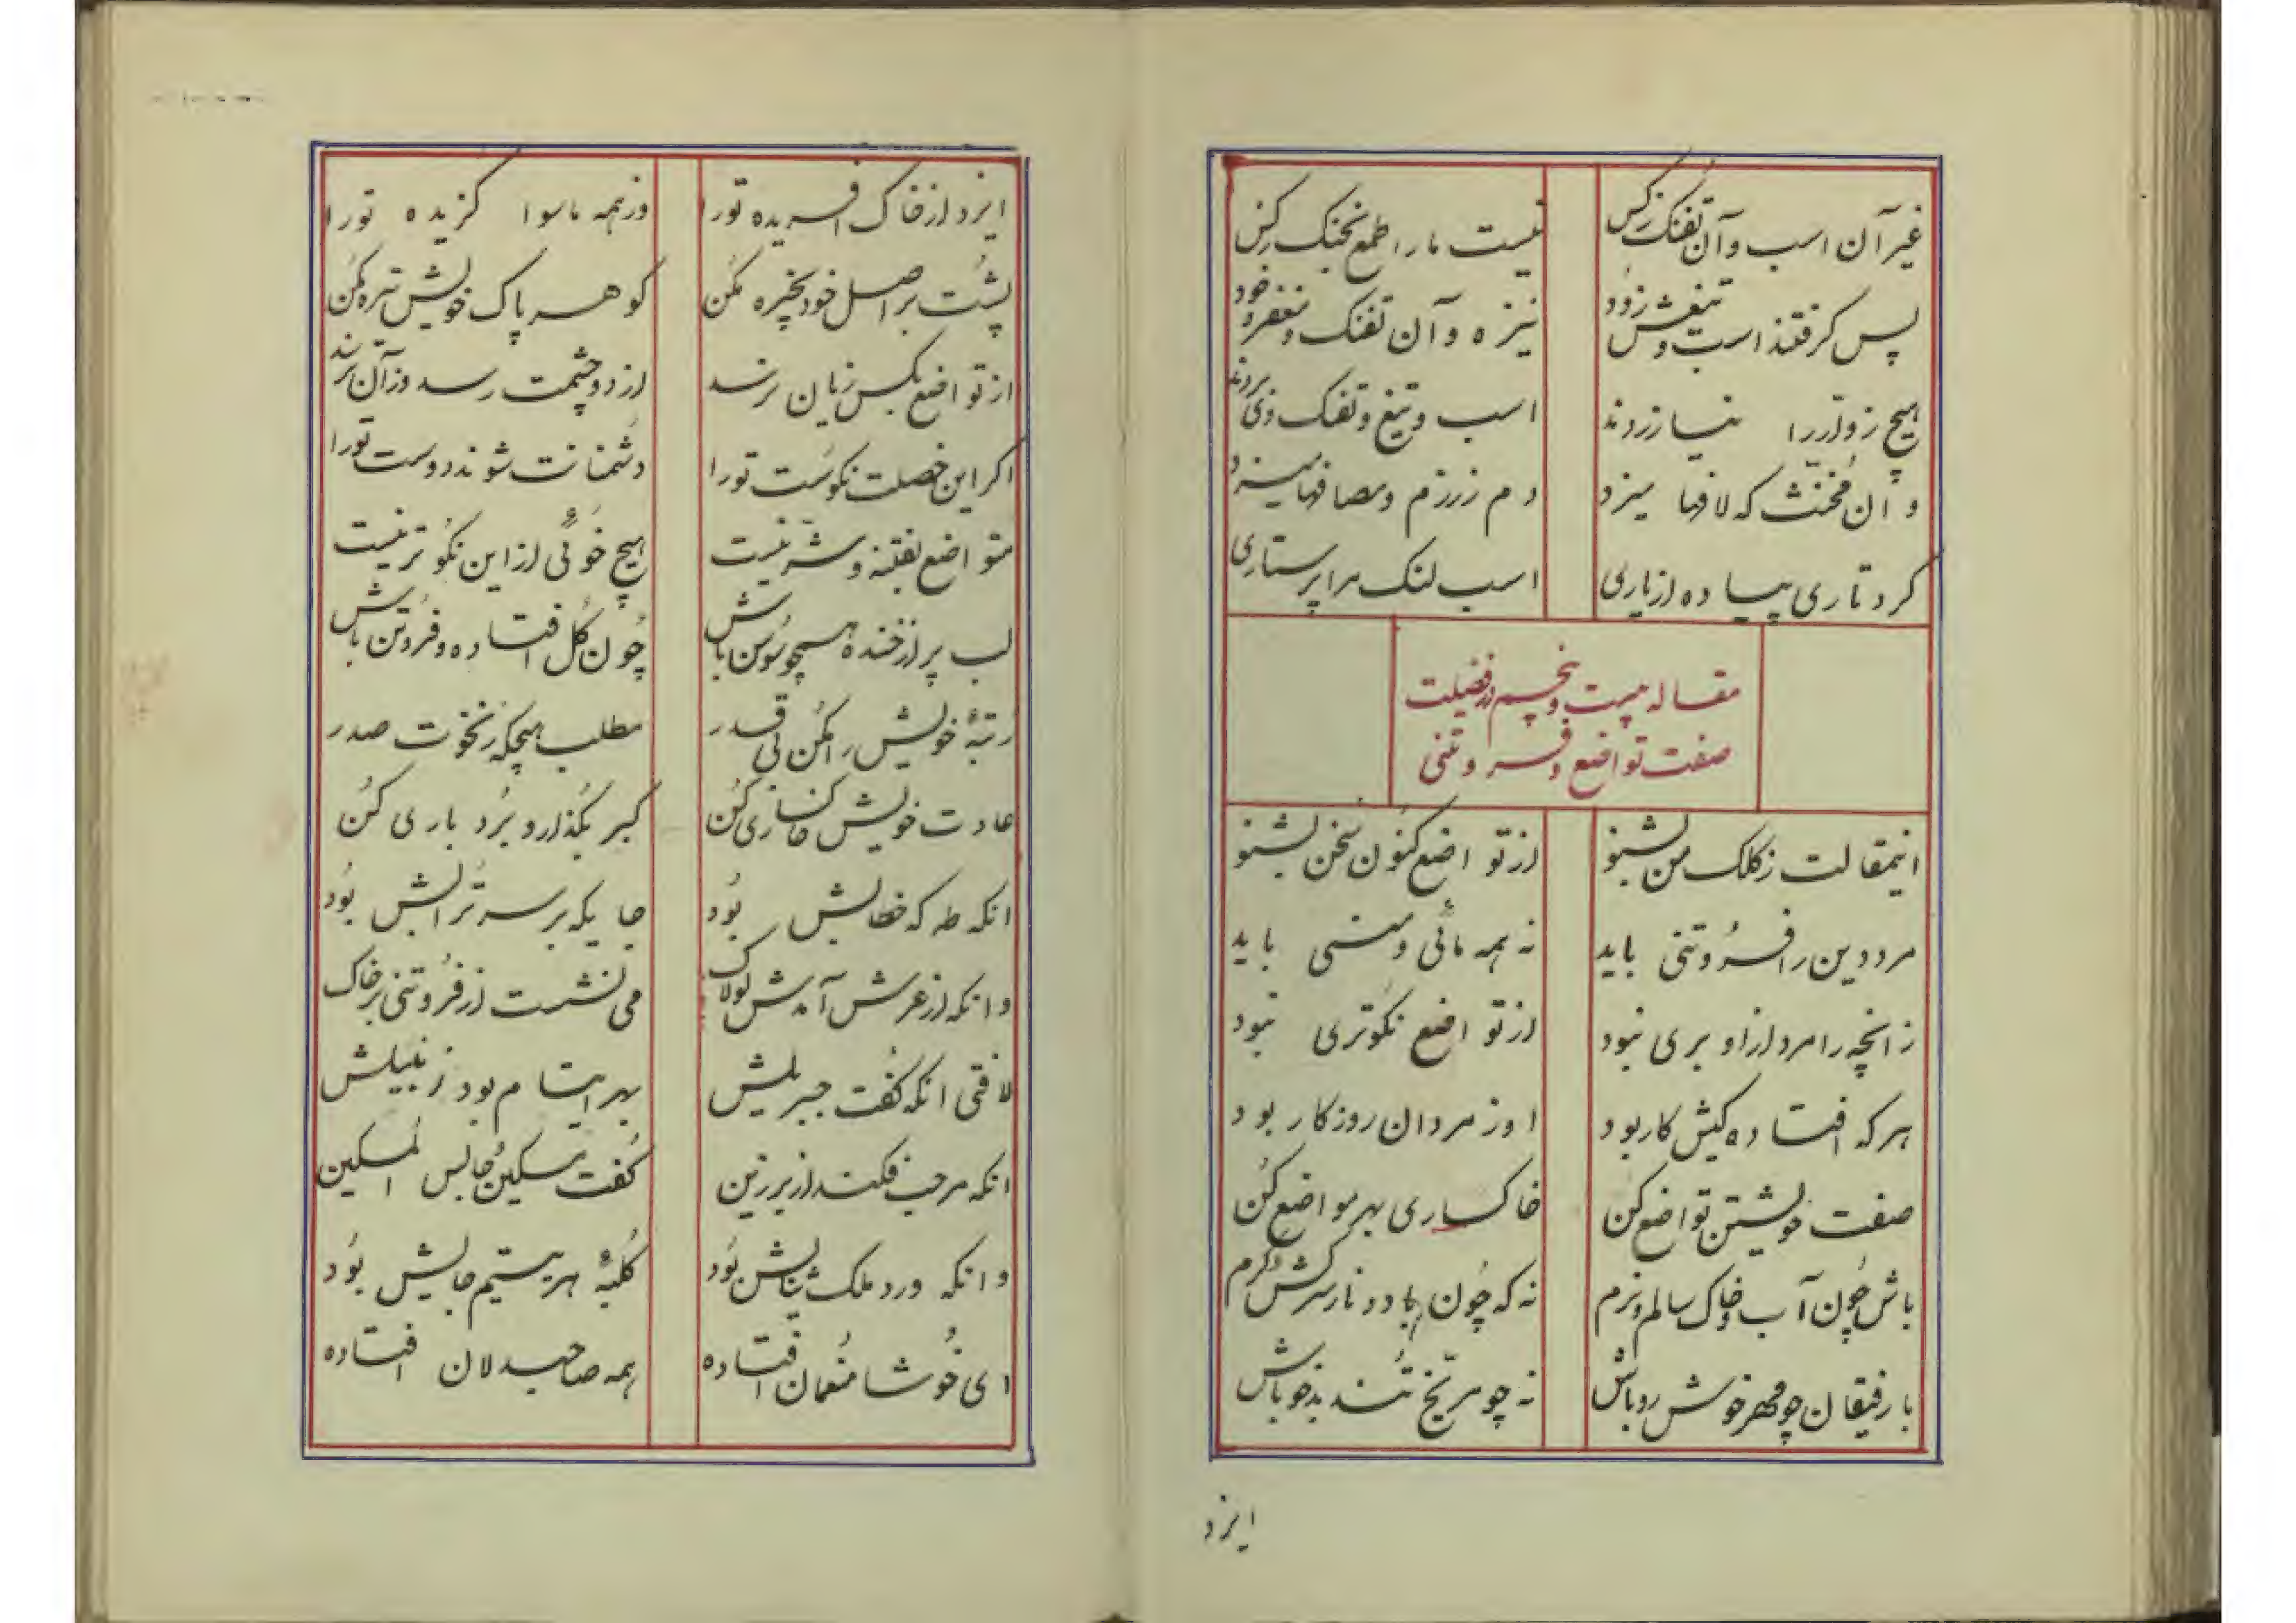 غیر آن اسب و آن تفنک زکس نیست ما را طمع بجنک زکس
پس کرفتند اسب و تیغش زود نیزه و آن تفنک و مغفر و خود
هیچ زوار را نیازردند اسب و تیغ و تفنک وی بردند
و ان مخنث که لافها میزد دم ز رزم و مصافها میزد
کرد تاری پیاده از یاری اسب لنک مرا پرستاری
مقاله بیست و پنجم در فضیلت
صفت تواضع و فروتنی
اینمقالت ز کلک من بشنو از تواضع کنون سخن بشنو
مرد دین را فروتنی باید نه همه مائی و منی باید
زانچه را مرد از او بری نبود از تواضع نکوتری نبود
هر که افتاده کیش کار بود او ز مردان روزکار بود
صفت خویشتن تواضع کن خاکساری بهر مواضع کن
باش چون آب و خاک سالم و نرم نه که چون باد و نار سرکش و کرم
با رفیقان چو مهر خوش رو باش نه چو مریخ تند بدخو باش
ایزد
ایزد از خاک افریده تورا وز همه ماسوا کزیده تورا
پشت بر اصل خود بخیره مکن کوهر پاک خویش تیره مکن
از تواضع بکس زیان نرسد از دو چشمت رسد وز آن نرسد
اکر این خصلت نکوست تورا دشمنانت شوند دوست تورا
متواضع بفتنه و شر نیست هیچ خوئی از این نکوتر نیست
لب پر از خنده همچو سوسن باش چون کل افتاده و فروتن باش
رتبهٔ خویش را مکن بی قدر مطلب هیچکه ز نخوت صدر
عادت خویش خاکساری کن کبر بکذار و بردباری کن
انکه طه که خطابش بود جایکه بر سر ترابش بود
وانکه از عرش آمدش لولاک می نشست از فروتنی بر خاک
لافتی انکه کفت جبریلش بهر ایتام بود زنبیلش
انکه مرحب فکند از بر زین کفت مسکین جالس المسکین
وانکه ورد ملک ثنایش بود کلبهٔ هر یتیم جایش بود
ای خوشا منعمان افتاده همه صاحبدلان افتاده